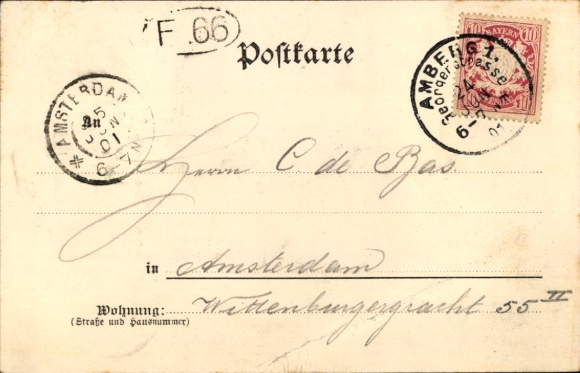 F. 66
Postkarte
10 BAYERN 10
AMBERG 1.
Georgenstrasse
24
JUN
AMSTERDAM
5
JUN
01
6-7N
An
Herrn C. de Bas.
in Amsterdam
Wohnung: Wittenburgergracht 55 II
(Straße und Hausnummer)